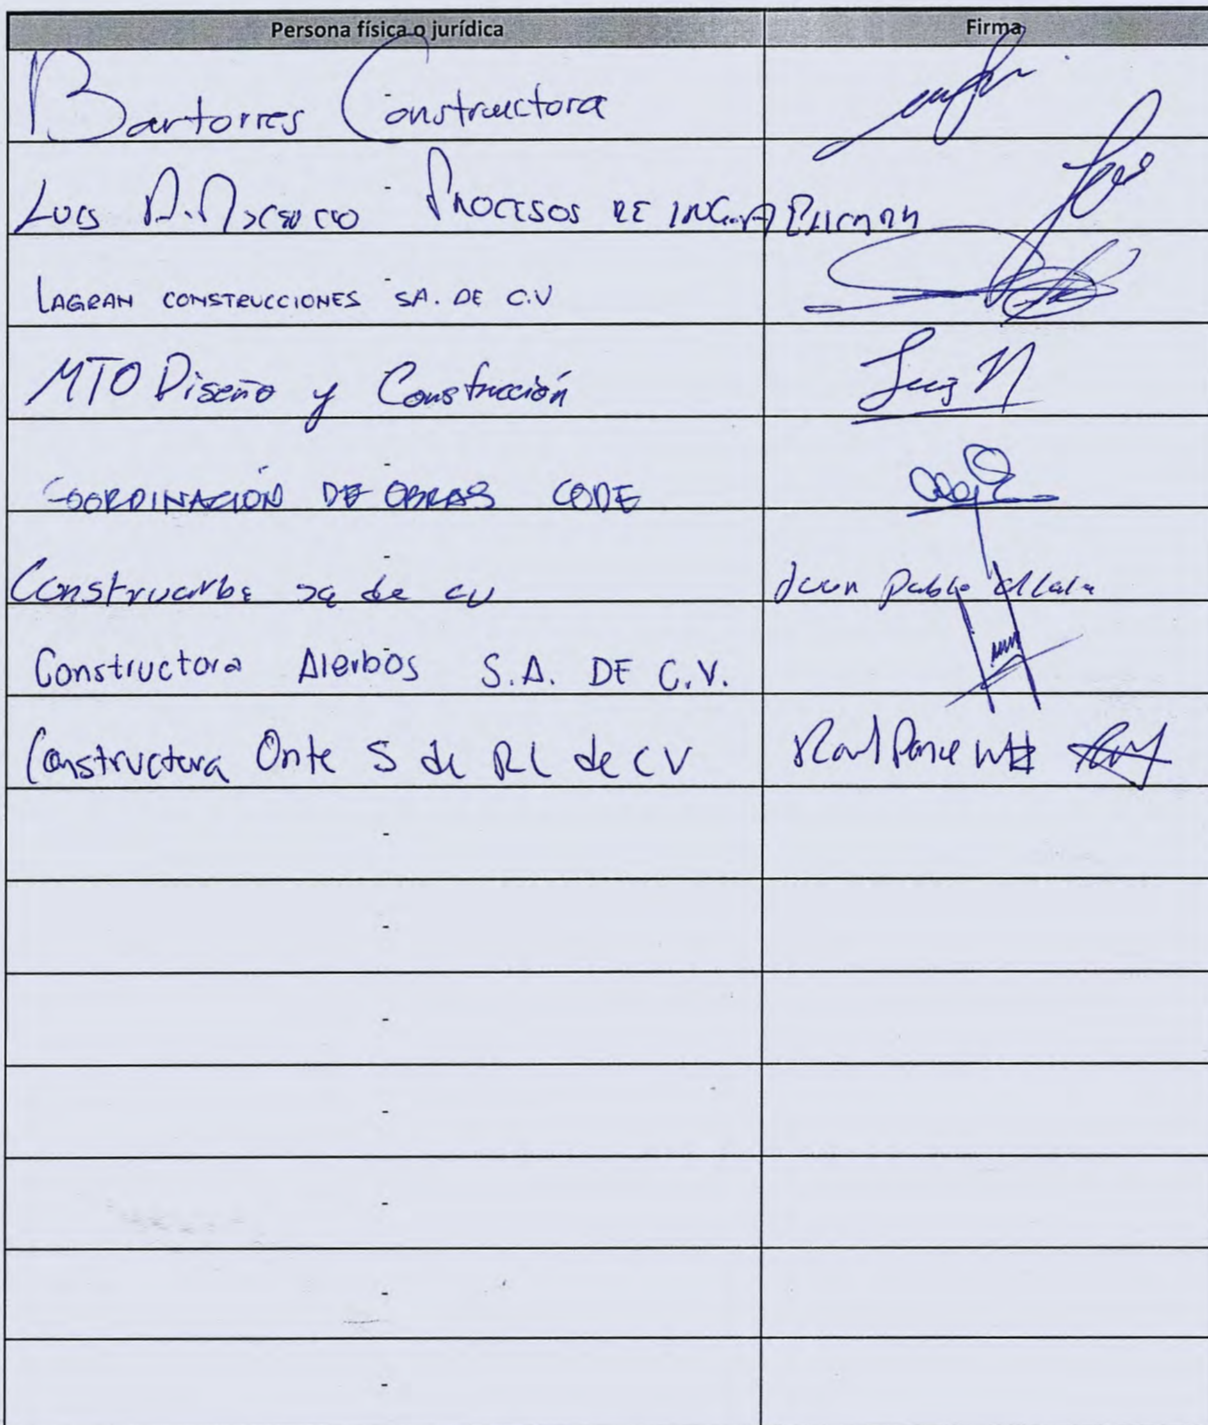 Persona física o jurídica Firma
Bartorres Constructora
Luis Procesos de
LAGRAN CONSTRUCCIONES SA. DE C.V
MTO Diseño y Construcción Luis M
COORDINACIÓN DE OBRAS CODE
Construarbe sa de cv Juan Pablo
Constructora Alerbos S.A. DE C.V.
Constructora Onte S de RL de CV Raul Ponce
-
-
-
-
-
-
-